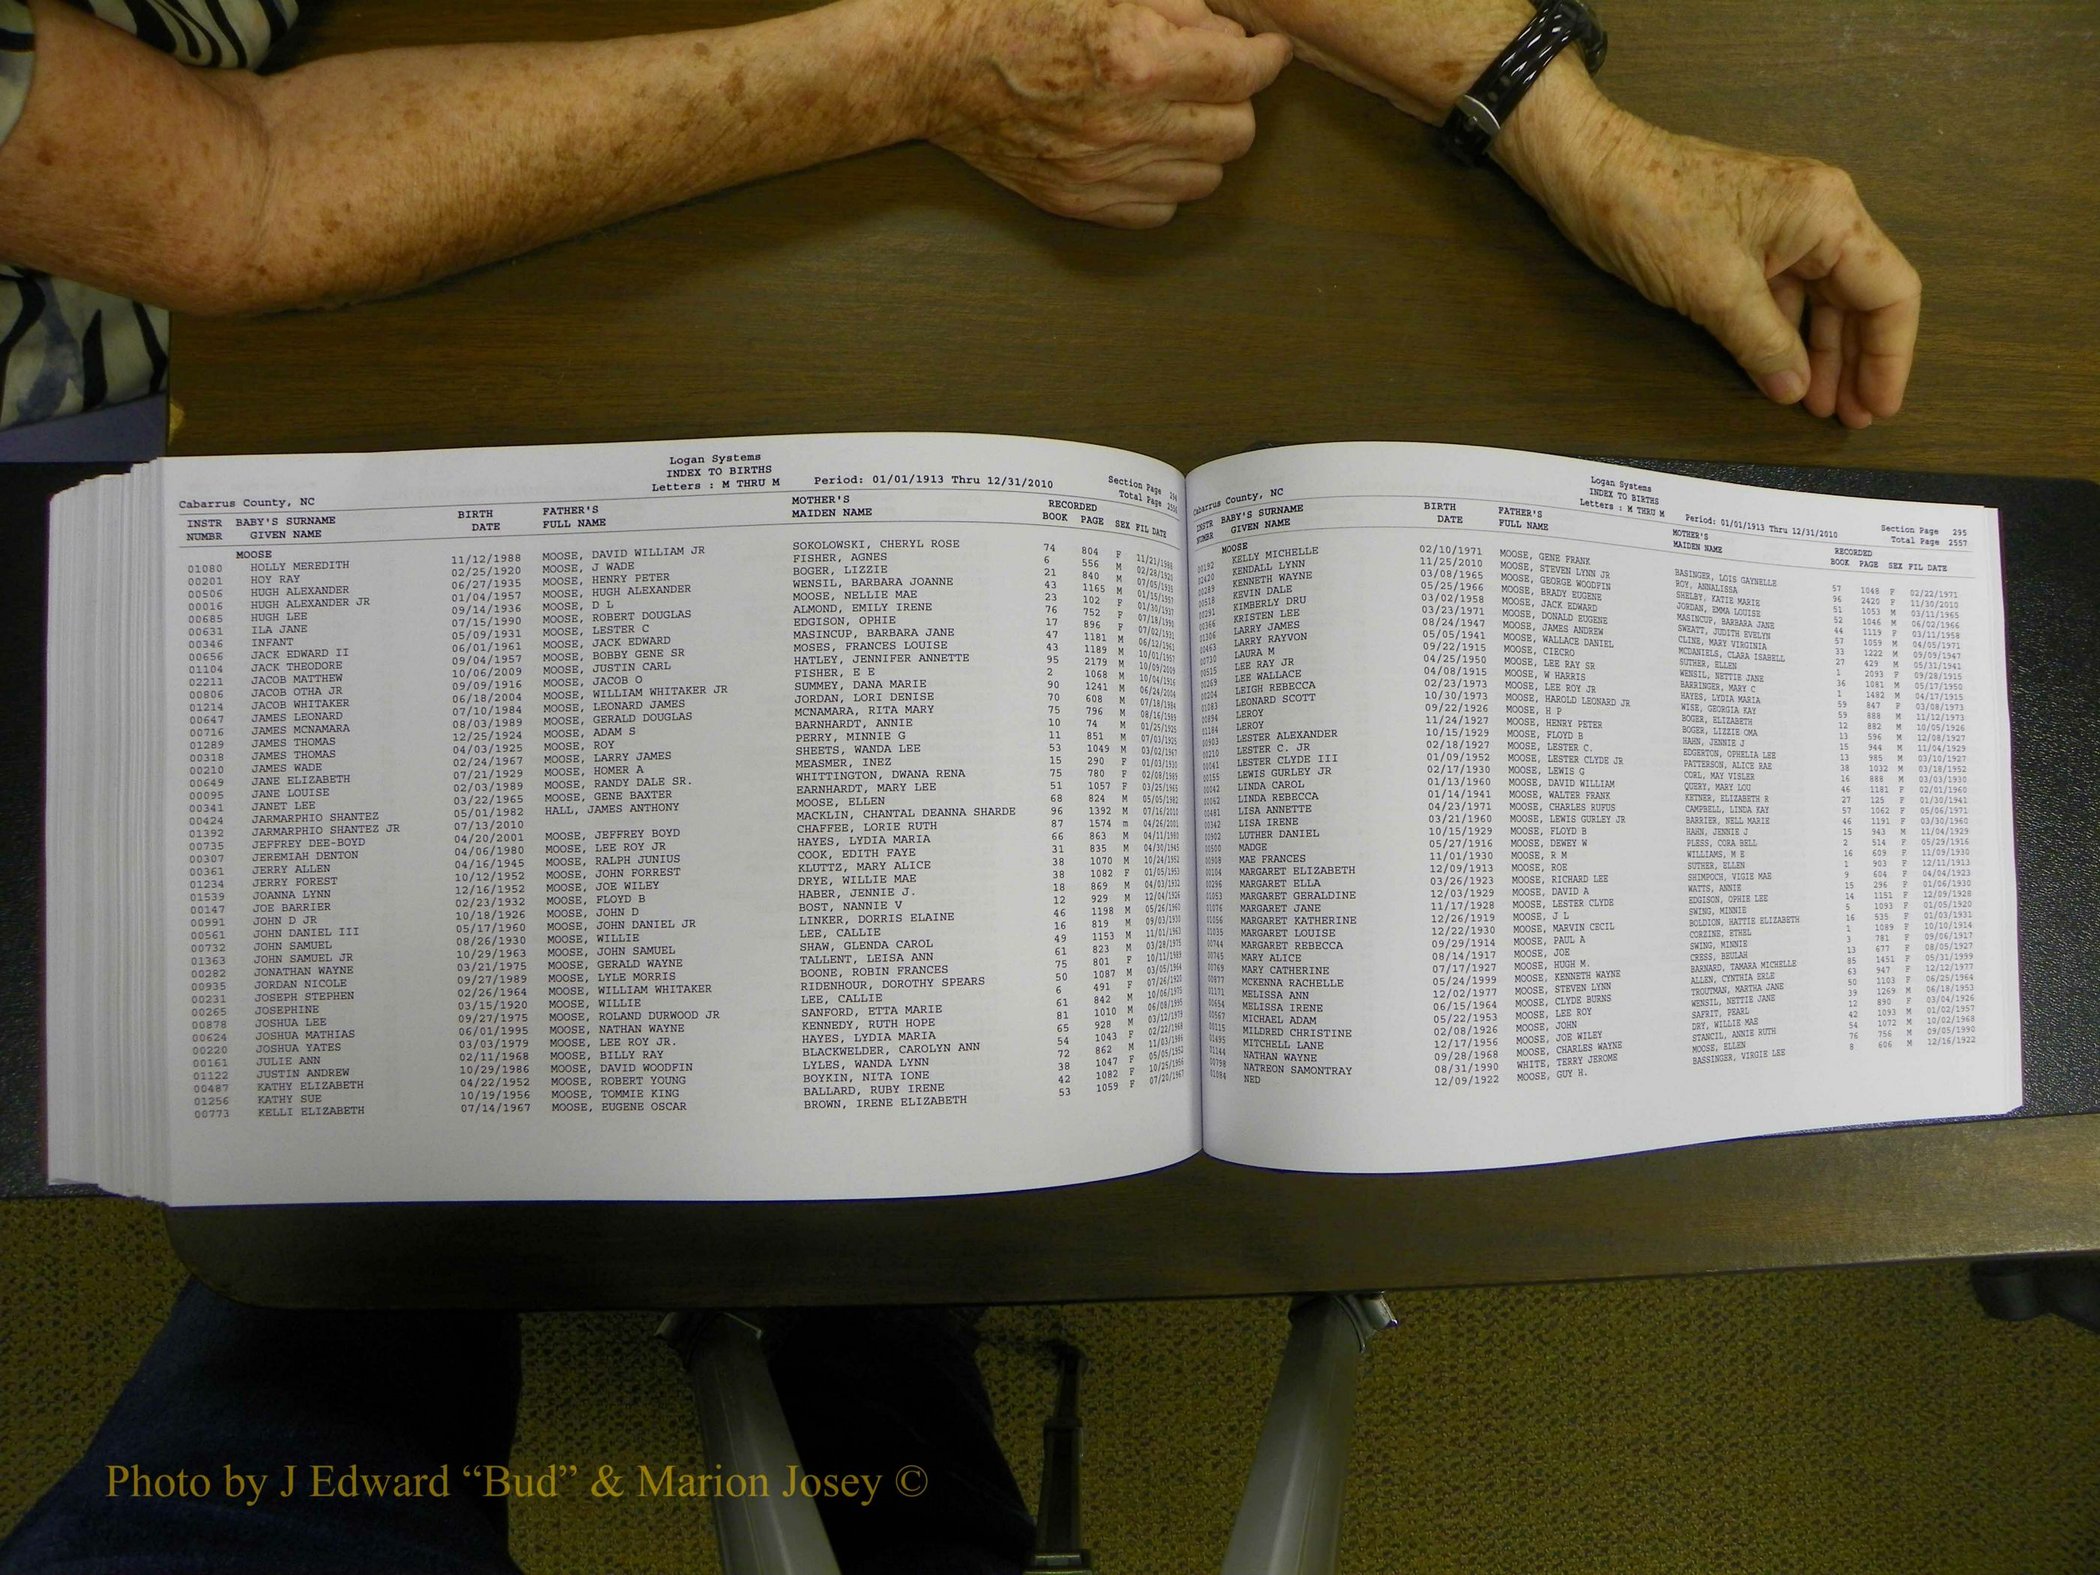 Logan Systems
INDEX TO BIRTHS
Letters : M THRU M
Cabarrus County, NC Period: 01/01/1913 Thru 12/31/2010 Section Page 294
Total Page 2556
INSTR NUMBR BABY'S SURNAME GIVEN NAME BIRTH DATE FATHER'S FULL NAME MOTHER'S MAIDEN NAME RECORDED BOOK PAGE SEX FIL DATE
MOOSE
01080 HOLLY MEREDITH 11/12/1988 MOOSE, DAVID WILLIAM JR SOKOLOWSKI, CHERYL ROSE 74 804 F 11/21/1988
00201 HOY RAY 02/25/1920 MOOSE, J WADE FISHER, AGNES 6 556 M 02/28/1920
00506 HUGH ALEXANDER 06/27/1935 MOOSE, HENRY PETER BOGER, LIZZIE 21 840 M 07/05/1935
00016 HUGH ALEXANDER JR 01/04/1957 MOOSE, HUGH ALEXANDER WENSIL, BARBARA JOANNE 43 1165 M 01/15/1957
00685 HUGH LEE 09/14/1936 MOOSE, D L MOOSE, NELLIE MAE 23 102 F 01/30/1937
00631 ILA JANE 07/15/1990 MOOSE, ROBERT DOUGLAS ALMOND, EMILY IRENE 76 752 F 07/18/1990
00346 INFANT 05/09/1931 MOOSE, LESTER C EDGISON, OPHIE 17 896 F 07/02/1931
00656 JACK EDWARD II 06/01/1961 MOOSE, JACK EDWARD MASINCUP, BARBARA JANE 47 1181 M 06/12/1961
01104 JACK THEODORE 09/04/1957 MOOSE, BOBBY GENE SR MOSES, FRANCES LOUISE 43 1189 M 10/01/1957
02211 JACOB MATTHEW 10/06/2009 MOOSE, JUSTIN CARL HATLEY, JENNIFER ANNETTE 95 2179 M 10/09/2009
00806 JACOB OTHA JR 09/09/1916 MOOSE, JACOB O FISHER, E E 2 1068 M 10/04/1916
01214 JACOB WHITAKER 06/18/2004 MOOSE, WILLIAM WHITAKER JR SUMMEY, DANA MARIE 90 1241 M 06/24/2004
00647 JAMES LEONARD 07/10/1984 MOOSE, LEONARD JAMES JORDAN, LORI DENISE 70 608 M 07/18/1984
00716 JAMES MCNAMARA 08/03/1989 MOOSE, GERALD DOUGLAS MCNAMARA, RITA MARY 75 796 M 08/16/1989
01289 JAMES THOMAS 12/25/1924 MOOSE, ADAM S BARNHARDT, ANNIE 10 74 M 01/25/1925
00318 JAMES THOMAS 04/03/1925 MOOSE, ROY PERRY, MINNIE G 11 851 M 07/03/1925
00210 JAMES WADE 02/24/1967 MOOSE, LARRY JAMES SHEETS, WANDA LEE 53 1049 M 03/02/1967
00649 JANE ELIZABETH 07/21/1929 MOOSE, HOMER A MEASMER, INEZ 15 290 F 01/03/1930
00095 JANE LOUISE 02/03/1989 MOOSE, RANDY DALE SR. WHITTINGTON, DWANA RENA 75 780 F 02/08/1989
00341 JANET LEE 03/22/1965 MOOSE, GENE BAXTER EARNHARDT, MARY LEE 51 1057 F 03/25/1965
00424 JARMARPHIO SHANTEZ 05/01/1982 HALL, JAMES ANTHONY MOOSE, ELLEN 68 824 M 05/05/1982
01392 JARMARPHIO SHANTEZ JR 07/13/2010 MACKLIN, CHANTAL DEANNA SHARDE 96 1392 M 07/16/2010
00735 JEFFREY DEE-BOYD 04/20/2001 MOOSE, JEFFREY BOYD CHAFFEE, LORIE RUTH 87 1574 m 04/26/2001
00307 JEREMIAH DENTON 04/06/1980 MOOSE, LEE ROY JR HAYES, LYDIA MARIA 66 863 M 04/11/1980
00361 JERRY ALLEN 04/16/1945 MOOSE, RALPH JUNIUS COOK, EDITH FAYE 31 835 M 04/30/1945
01234 JERRY FOREST 10/12/1952 MOOSE, JOHN FORREST KLUTTZ, MARY ALICE 38 1070 M 10/24/1952
01539 JOANNA LYNN 12/16/1952 MOOSE, JOE WILEY DRYE, WILLIE MAE 38 1082 F 01/05/1953
00147 JOE BARRIER 02/23/1932 MOOSE, FLOYD B HABER, JENNIE J. 18 869 M 04/03/1932
00991 JOHN D JR 10/18/1926 MOOSE, JOHN D BOST, NANNIE V 12 929 M 12/04/1926
00561 JOHN DANIEL III 05/17/1960 MOOSE, JOHN DANIEL JR LINKER, DORRIS ELAINE 46 1198 M 05/26/1960
00732 JOHN SAMUEL 08/26/1930 MOOSE, WILLIE LEE, CALLIE 16 819 M 09/03/1930
01363 JOHN SAMUEL JR 10/29/1963 MOOSE, JOHN SAMUEL SHAW, GLENDA CAROL 49 1153 M 11/01/1963
00282 JONATHAN WAYNE 03/21/1975 MOOSE, GERALD WAYNE TALLENT, LEISA ANN 61 823 M 03/28/1975
00935 JORDAN NICOLE 09/27/1989 MOOSE, LYLE MORRIS BOONE, ROBIN FRANCES 75 801 F 10/11/1989
00231 JOSEPH STEPHEN 02/26/1964 MOOSE, WILLIAM WHITAKER RIDENHOUR, DOROTHY SPEARS 50 1087 M 03/05/1964
00265 JOSEPHINE 03/15/1920 MOOSE, WILLIE LEE, CALLIE 6 491 F 07/26/1920
00878 JOSHUA LEE 09/27/1975 MOOSE, ROLAND DURWOOD JR SANFORD, ETTA MARIE 61 842 M 10/06/1975
00624 JOSHUA MATHIAS 06/01/1995 MOOSE, NATHAN WAYNE KENNEDY, RUTH HOPE 81 1010 M 06/08/1995
00220 JOSHUA YATES 03/03/1979 MOOSE, LEE ROY JR. HAYES, LYDIA MARIA 65 928 M 03/12/1979
00161 JULIE ANN 02/11/1968 MOOSE, BILLY RAY BLACKWELDER, CAROLYN ANN 54 1043 F 02/22/1968
01122 JUSTIN ANDREW 10/29/1986 MOOSE, DAVID WOODFIN LYLES, WANDA LYNN 72 862 M 11/03/1986
00487 KATHY ELIZABETH 04/22/1952 MOOSE, ROBERT YOUNG BOYKIN, NITA IONE 38 1047 F 05/05/1952
01256 KATHY SUE 10/19/1956 MOOSE, TOMMIE KING BALLARD, RUBY IRENE 42 1082 F 10/25/1956
00773 KELLI ELIZABETH 07/14/1967 MOOSE, EUGENE OSCAR BROWN, IRENE ELIZABETH 53 1059 F 07/20/1967
Logan Systems
INDEX TO BIRTHS
Letters : M THRU M
Cabarrus County, NC Period: 01/01/1913 Thru 12/31/2010 Section Page 295
Total Page 2557
INSTR NUMBR BABY'S SURNAME GIVEN NAME BIRTH DATE FATHER'S FULL NAME MOTHER'S MAIDEN NAME RECORDED BOOK PAGE SEX FIL DATE
MOOSE
00192 KELLY MICHELLE 02/10/1971 MOOSE, GENE FRANK BASINGER, LOIS GAYNELLE 57 1048 F 02/22/1971
02420 KENDALL LYNN 11/25/2010 MOOSE, STEVEN LYNN JR ROY, ANNALISSA 96 2420 F 11/30/2010
00289 KENNETH WAYNE 03/08/1965 MOOSE, GEORGE WOODFIN SHELBY, KATIE MARIE 51 1053 M 03/11/1965
00518 KEVIN DALE 05/25/1966 MOOSE, BRADY EUGENE JORDAN, EMMA LOUISE 52 1046 M 06/02/1966
00291 KIMBERLY DRU 03/02/1958 MOOSE, JACK EDWARD MASINCUP, BARBARA JANE 44 1119 F 03/11/1958
00366 KRISTEN LEE 03/23/1971 MOOSE, DONALD EUGENE SWEATT, JUDITH EVELYN 57 1059 M 04/05/1971
01306 LARRY JAMES 08/24/1947 MOOSE, JAMES ANDREW CLINE, MARY VIRGINIA 33 1222 M 09/09/1947
00463 LARRY RAYVON 05/05/1941 MOOSE, WALLACE DANIEL MCDANIELS, CLARA ISABELL 27 429 M 05/31/1941
00730 LAURA M 09/22/1915 MOOSE, CIECRO SUTHER, ELLEN 1 2093 F 09/28/1915
00515 LEE RAY JR 04/25/1950 MOOSE, LEE RAY SR WENSIL, NETTIE JANE 36 1081 M 05/17/1950
00269 LEE WALLACE 04/08/1915 MOOSE, W HARRIS BARRINGER, MARY C 1 1482 M 04/17/1915
00204 LEIGH REBECCA 02/23/1973 MOOSE, LEE ROY JR HAYES, LYDIA MARIA 59 847 F 03/08/1973
01083 LEONARD SCOTT 10/30/1973 MOOSE, HAROLD LEONARD JR WISE, GEORGIA KAY 59 888 M 11/12/1973
00894 LEROY 09/22/1926 MOOSE, H P BOGER, ELIZABETH 12 882 M 10/05/1926
01184 LEROY 11/24/1927 MOOSE, HENRY PETER BOGER, LIZZIE OMA 13 596 M 12/08/1927
00903 LESTER ALEXANDER 10/15/1929 MOOSE, FLOYD B HAHN, JENNIE J 15 944 M 11/04/1929
00210 LESTER C. JR 02/18/1927 MOOSE, LESTER C. EDGERTON, OPHELIA LEE 13 985 M 03/10/1927
00041 LESTER CLYDE III 01/09/1952 MOOSE, LESTER CLYDE JR PATTERSON, ALICE RAE 38 1032 M 03/18/1952
00155 LEWIS GURLEY JR 02/17/1930 MOOSE, LEWIS G CORL, MAY VISLER 16 888 M 03/03/1930
00042 LINDA CAROL 01/13/1960 MOOSE, DAVID WILLIAM QUERY, MARY LOU 46 1181 F 02/01/1960
00062 LINDA REBECCA 01/14/1941 MOOSE, WALTER FRANK KETNER, ELIZABETH R 27 125 F 01/30/1941
00481 LISA ANNETTE 04/23/1971 MOOSE, CHARLES RUFUS CAMPBELL, LINDA KAY 57 1062 F 05/06/1971
00342 LISA IRENE 03/21/1960 MOOSE, LEWIS GURLEY JR BARRIER, NELL MARIE 46 1191 F 03/30/1960
00902 LUTHER DANIEL 10/15/1929 MOOSE, FLOYD B HAHN, JENNIE J 15 943 M 11/04/1929
00500 MADGE 05/27/1916 MOOSE, DEWEY W PLESS, CORA BELL 2 514 F 05/29/1916
00908 MAE FRANCES 11/01/1930 MOOSE, R M WILLIAMS, M E 16 609 F 11/09/1930
00104 MARGARET ELIZABETH 12/09/1913 MOOSE, ROE SUTHER, ELLEN 1 903 F 12/11/1913
00296 MARGARET ELLA 03/26/1923 MOOSE, RICHARD LEE SHIMPOCH, VIGIE MAE 9 604 F 04/04/1923
01053 MARGARET GERALDINE 12/03/1929 MOOSE, DAVID A WATTS, ANNIE 15 296 F 01/06/1930
01076 MARGARET JANE 11/17/1928 MOOSE, LESTER CLYDE EDGISON, OPHIE LEE 14 1151 F 12/09/1928
01056 MARGARET KATHERINE 12/26/1919 MOOSE, J L SWING, MINNIE 5 1093 F 01/05/1920
01035 MARGARET LOUISE 12/22/1930 MOOSE, MARVIN CECIL BOLDION, HATTIE ELIZABETH 16 535 F 01/03/1931
00744 MARGARET REBECCA 09/29/1914 MOOSE, PAUL A CORZINE, ETHEL 1 1089 F 10/10/1914
00745 MARY ALICE 08/14/1917 MOOSE, JOE SWING, MINNIE 3 781 F 09/06/1917
00769 MARY CATHERINE 07/17/1927 MOOSE, HUGH M. CRESS, BEULAH 13 677 F 08/05/1927
00877 MCKENNA RACHELLE 05/24/1999 MOOSE, KENNETH WAYNE BARNARD, TAMARA MICHELLE 85 1451 F 05/31/1999
01171 MELISSA ANN 12/02/1977 MOOSE, STEVEN LYNN ALLEN, CYNTHIA ERLE 63 947 F 12/12/1977
00654 MELISSA IRENE 06/15/1964 MOOSE, CLYDE BURNS TROUTMAN, MARTHA JANE 50 1103 F 06/25/1964
00567 MICHAEL ADAM 05/22/1953 MOOSE, LEE ROY WENSIL, NETTIE JANE 39 1269 M 06/18/1953
00115 MILDRED CHRISTINE 02/08/1926 MOOSE, JOHN SAFRIT, PEARL 12 890 F 03/04/1926
01495 MITCHELL LANE 12/17/1956 MOOSE, JOE WILEY DRY, WILLIE MAE 42 1093 M 01/02/1957
01144 NATHAN WAYNE 09/28/1968 MOOSE, CHARLES WAYNE STANCIL, ANNIE RUTH 54 1072 M 10/02/1968
00798 NATREON SAMONTRAY 08/31/1990 WHITE, TERRY JEROME MOOSE, ELLEN 76 756 M 09/05/1990
01084 NED 12/09/1922 MOOSE, GUY H. BASSINGER, VIRGIE LEE 8 606 M 12/16/1922
Photo by J Edward “Bud” & Marion Josey ©